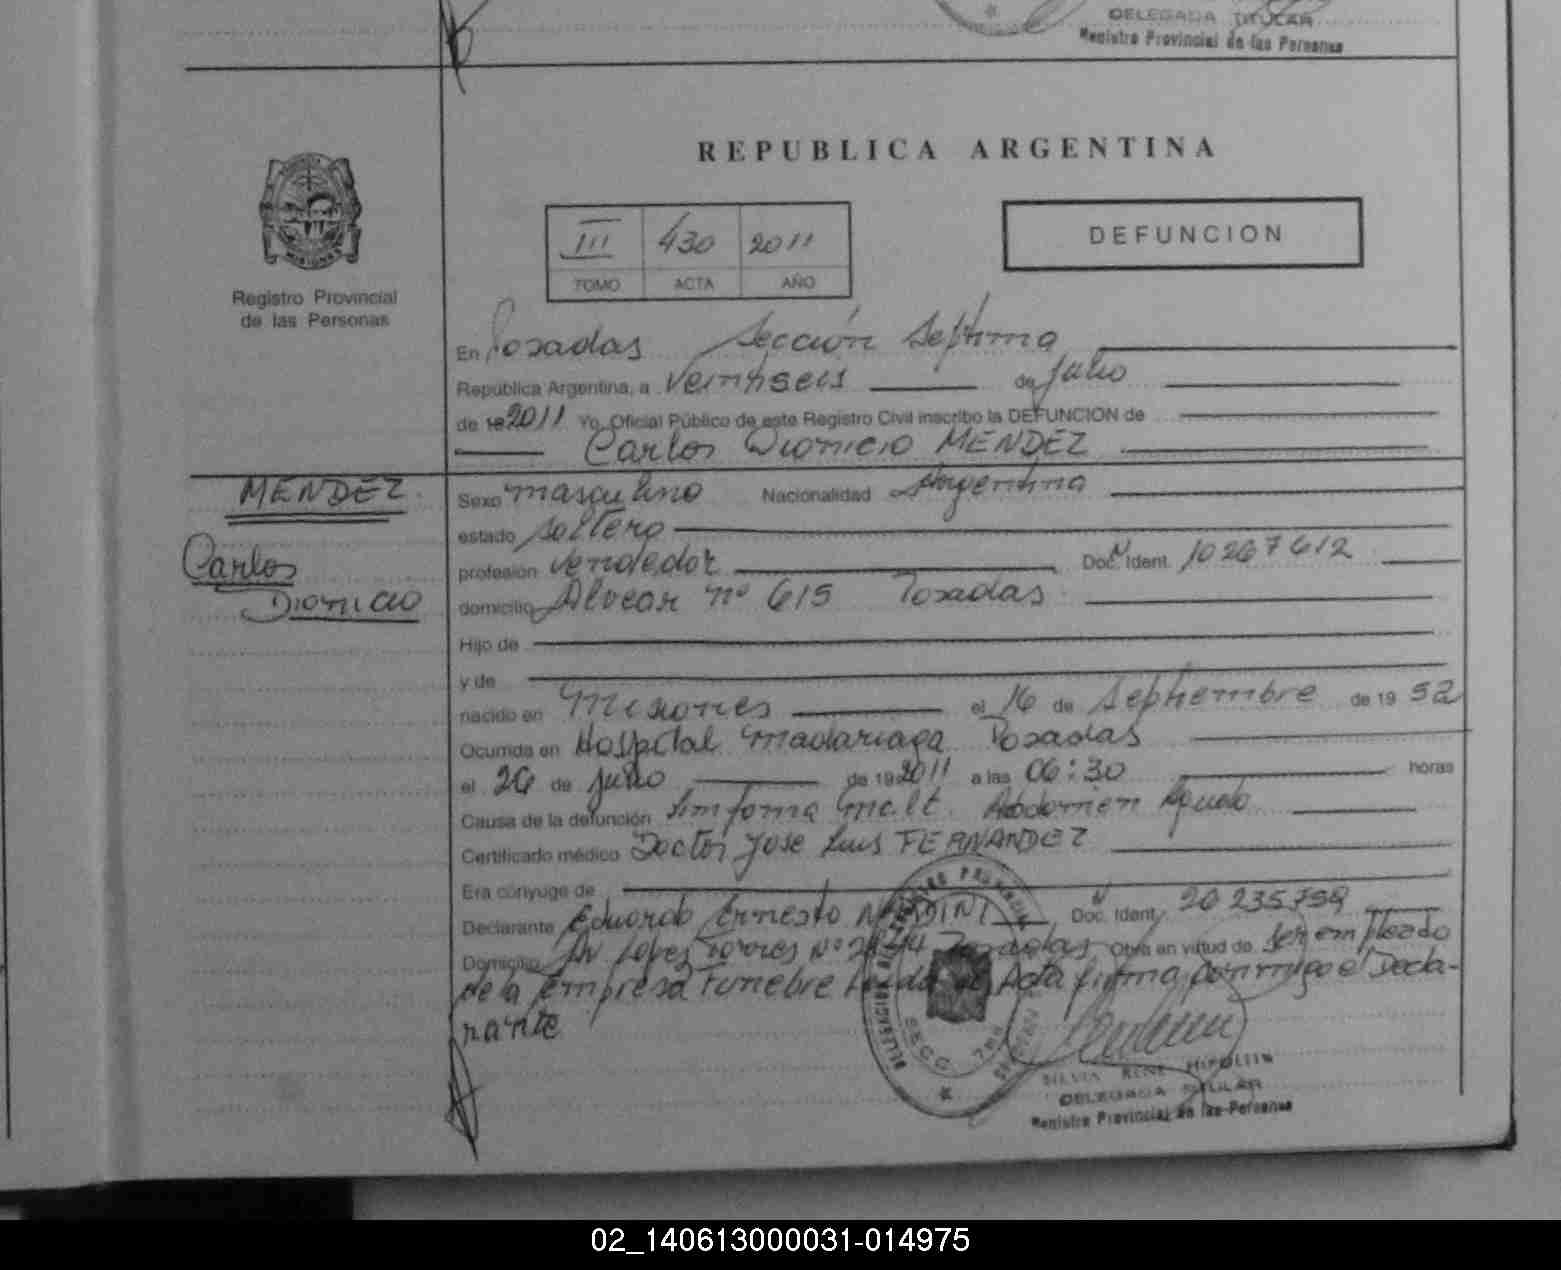 DELEGADA TITULAR
Registro Provincial de las Personas
REPUBLICA ARGENTINA
III 430 2011
TOMO ACTA AÑO
DEFUNCION
MISIONES
Registro Provincial
de las Personas
En Posadas Sección Septima
República Argentina, a veintiseis de Julio
de 19 2011 Yo, Oficial Público de este Registro Civil inscribo la DEFUNCION de
Carlos Dionicio MENDEZ
MENDEZ
Carlos
Dionicio
Sexo masculino Nacionalidad Argentina
estado soltero
profesión vendedor Doc. Ident. 10267612
domicilio Alvear nº 615 Posadas
Hijo de
y de
nacido en Misiones el 16 de Septiembre de 19 52
Ocurrida en Hospital Madariaga Posadas
el 26 de julio de 19 2011 a las 06:30 horas
Causa de la defunción Linfoma malt. Abdomen Agudo
Certificado médico Doctor Jose Luis FERNANDEZ
Era cónyuge de
Declarante Eduardo Ernesto Doc. Ident. 20.235.799
Domicilio Av Lopez Torres Nº Posadas Obra en virtud de ser empleado
de la Empresa Funebre Leida el Acta firma conmigo el Decla-
rante
SECC. 7ma
SILVIA RENE HIPOLITO
DELEGADA TITULAR
Registro Provincial de las Personas
02_140613000031-014975